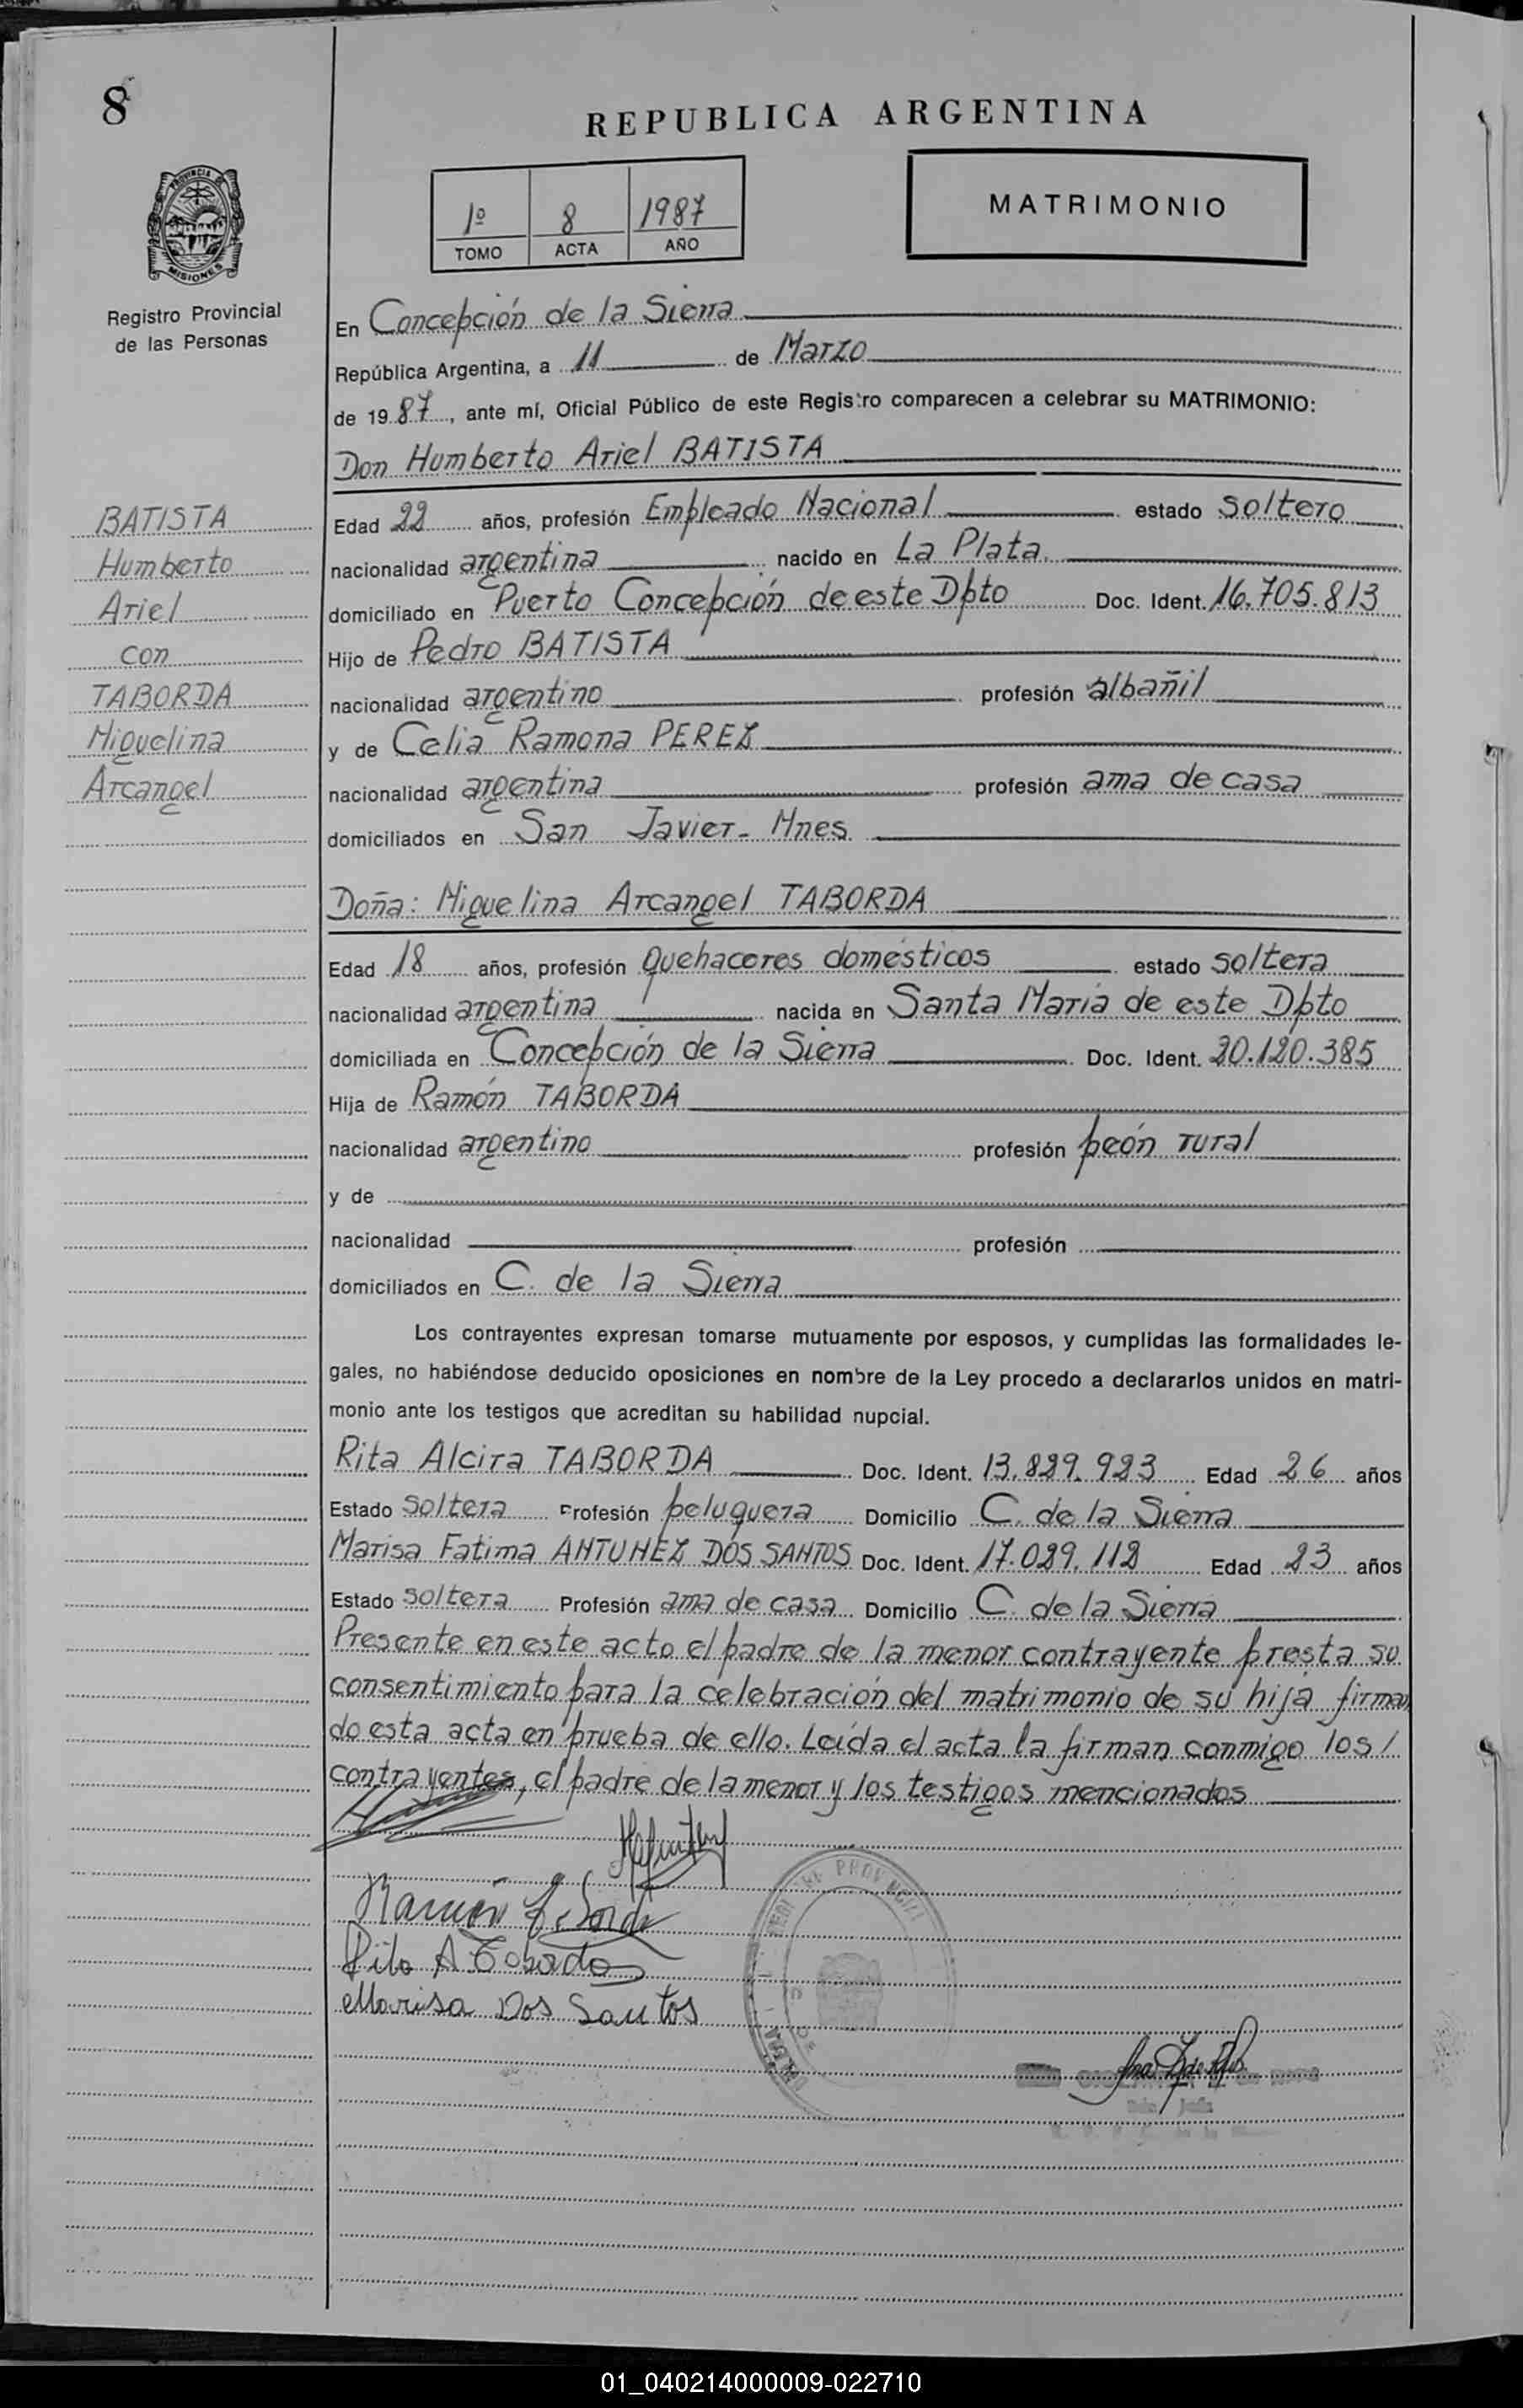 8
REPUBLICA ARGENTINA
1º 8 1987
TOMO ACTA AÑO
MATRIMONIO
PROVINCIA
MISIONES
Registro Provincial
de las Personas
En Concepción de la Sierra
República Argentina, a 11 de Marzo
de 1987, ante mí, Oficial Público de este Registro comparecen a celebrar su MATRIMONIO:
Don Humberto Ariel BATISTA
BATISTA
Humberto
Ariel
con
TABORDA
Miguelina
Arcangel
Edad 22 años, profesión Empleado Nacional estado soltero
nacionalidad argentina nacido en La Plata.
domiciliado en Puerto Concepción de este Dpto Doc. Ident. 16.705.813
Hijo de Pedro BATISTA
nacionalidad argentino profesión albañil
y de Celia Ramona PEREZ
nacionalidad argentina profesión ama de casa
domiciliados en San Javier - Mnes.
Doña: Miguelina Arcangel TABORDA
Edad 18 años, profesión quehaceres domésticos estado soltera
nacionalidad argentina nacida en Santa María de este Dpto
domiciliada en Concepción de la Sierra Doc. Ident. 20.120.385
Hija de Ramón TABORDA
nacionalidad argentino profesión peón rural
y de
nacionalidad profesión
domiciliados en C. de la Sierra
Los contrayentes expresan tomarse mutuamente por esposos, y cumplidas las formalidades le-
gales, no habiéndose deducido oposiciones en nombre de la Ley procedo a declararlos unidos en matri-
monio ante los testigos que acreditan su habilidad nupcial.
Rita Alcira TABORDA Doc. Ident. 13.829.923 Edad 26 años
Estado soltera Profesión peluquera Domicilio C. de la Sierra
Marisa Fatima ANTUNEZ DOS SANTOS Doc. Ident. 17.029.112 Edad 23 años
Estado soltera Profesión ama de casa Domicilio C. de la Sierra
Presente en este acto el padre de la menor contrayente presta su
consentimiento para la celebración del matrimonio de su hija firman
do esta acta en prueba de ello. Leída el acta la firman conmigo los /
contrayentes, el padre de la menor y los testigos mencionados
Ramón Taborda
Rita A Taborda
Marisa Dos Santos
01_040214000009-022710